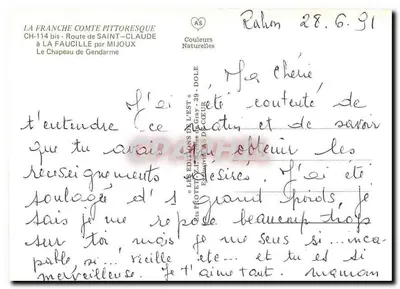 LA FRANCHE COMTE PITTORESQUE
CH-114 bis - Route de SAINT-CLAUDE
à LA FAUCILLE par MIJOUX
Le Chapeau de Gendarme
AS
Couleurs
Naturelles
Rahon 28.6.91
Ma Chérie,
J'ai été contente de
t'entendre ce matin et de savoir
que tu avais pu obtenir les
renseignements désirés. J'ai été
soulagée d'1 grand poids, je
sais je me repose beaucoup trop
sur toi, mais je me sens si... inca-
pable, si... vieille été... et tu es si
merveilleuse. Je t'aime tant. maman
« LES EDITIONS DE L'EST »
39 - DOLE